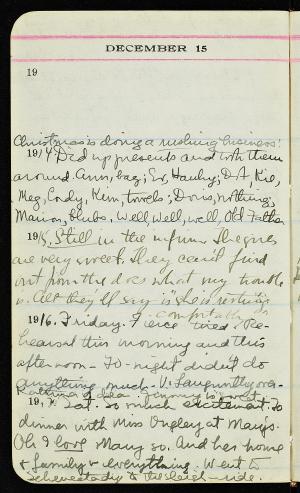 DECEMBER 15
19
Christmas is doing a rushing business!
1914 Did up presents and took them
around. Ann, bag; Er, Hauky; D.A, Kie,
Meg, Cody, Kim, towels; Doris, nothing;
Marion, bulbs. Well, well, well, Old Father
1915. Still in the infirm. The girls
are very sweet. They can't find
out from the docs what my trouble
is. All they'll say is "she is resting
comfortably"
1916. Friday. Fierce tired. Re-
hearsal this morning and this
afternoon - To-night didn't do
anything much - V. Languntly over-
1917. Sat. So much excitement. To
dinner with Miss at Mary's.
Oh I love Mary so. And her home
& family & everything. Went to
Schenectady & the sleigh-ride.